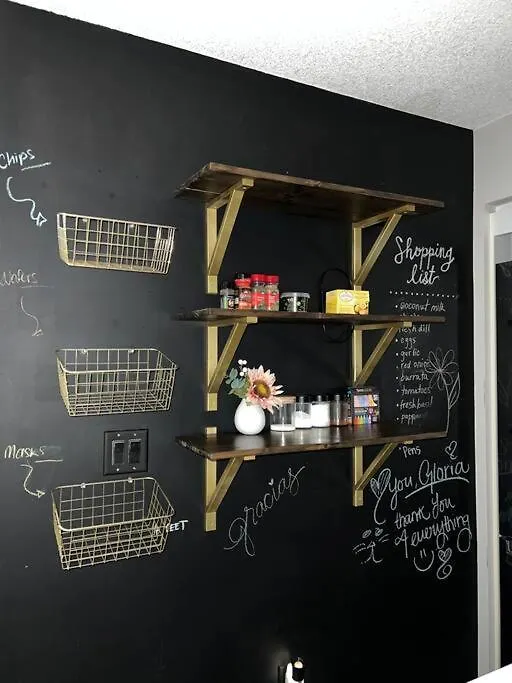 Chips
Wafers
Masks
EET
gracias
Shopping
list
• coconut milk
• fresh dill
• eggs
• garlic
• red onion
• burrata
• tomatoes
• fresh basil
• Pens
♡ you, Gloria
thank you
4 everything